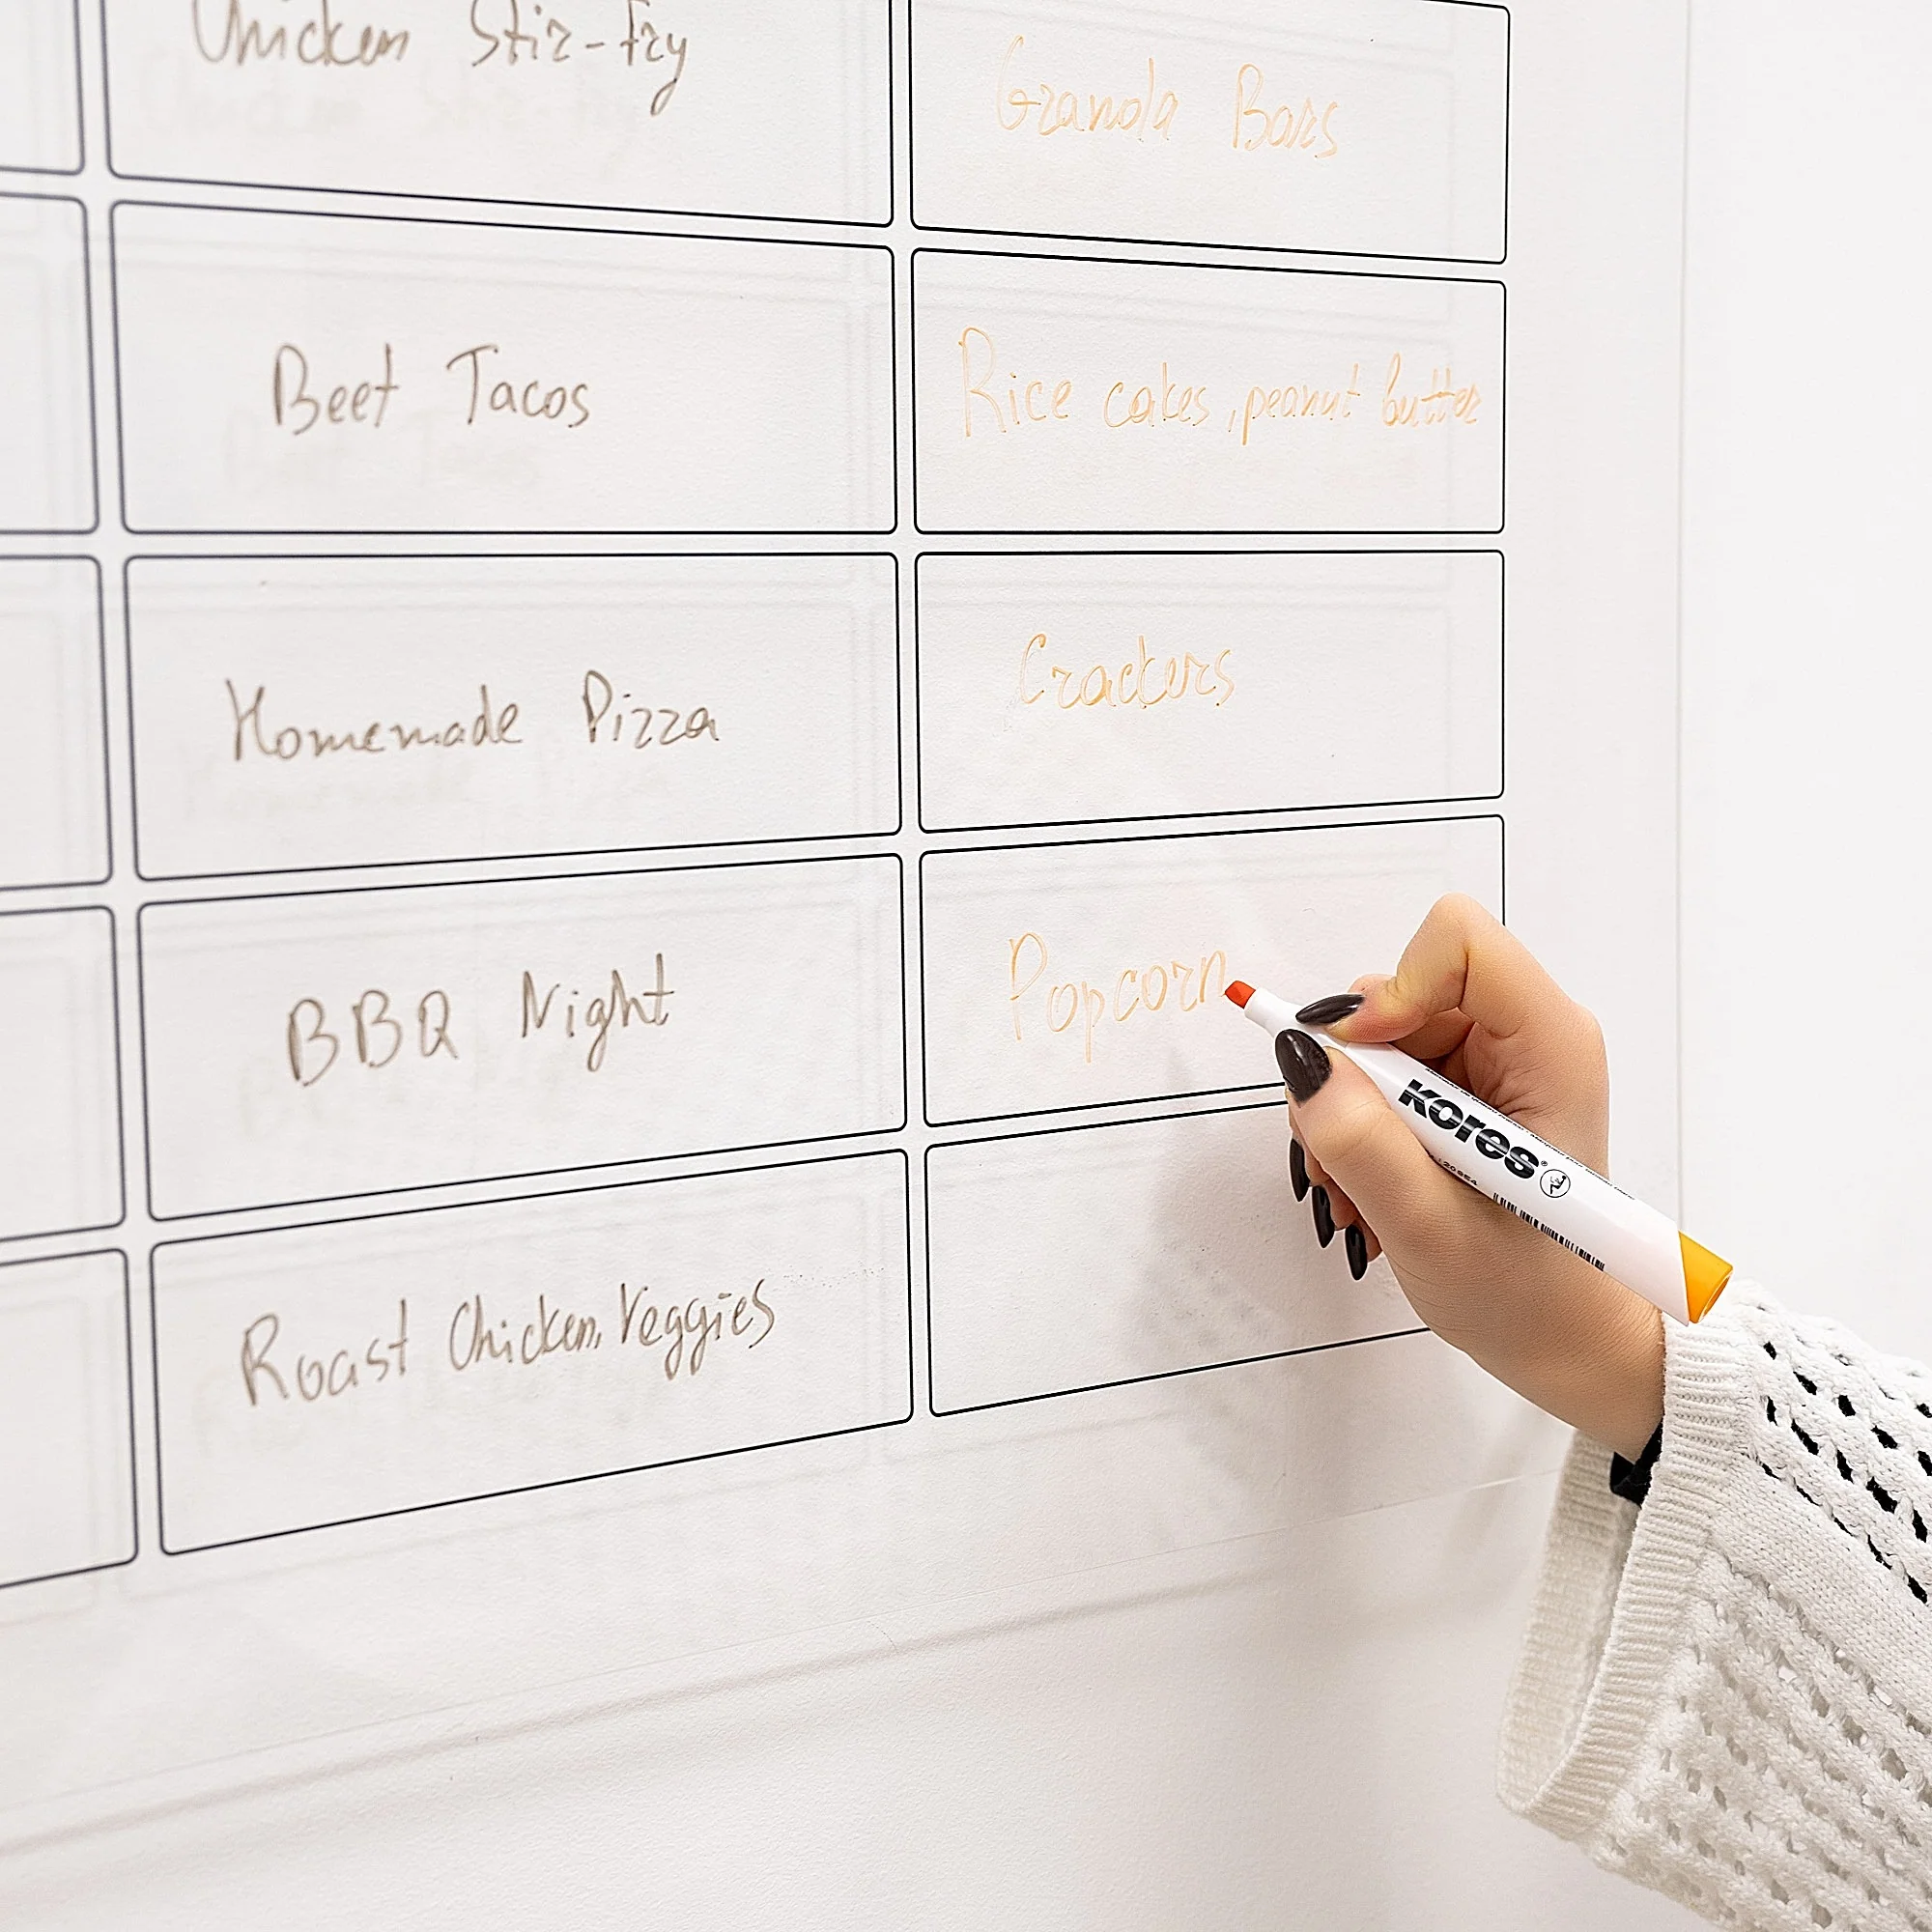 Chicken Stir-fry
Granola Bars
Beef Tacos
Rice cakes, peanut butter
Homemade Pizza
Crackers
BBQ Night
Popcorn
Roast Chicken, Veggies
Kores®